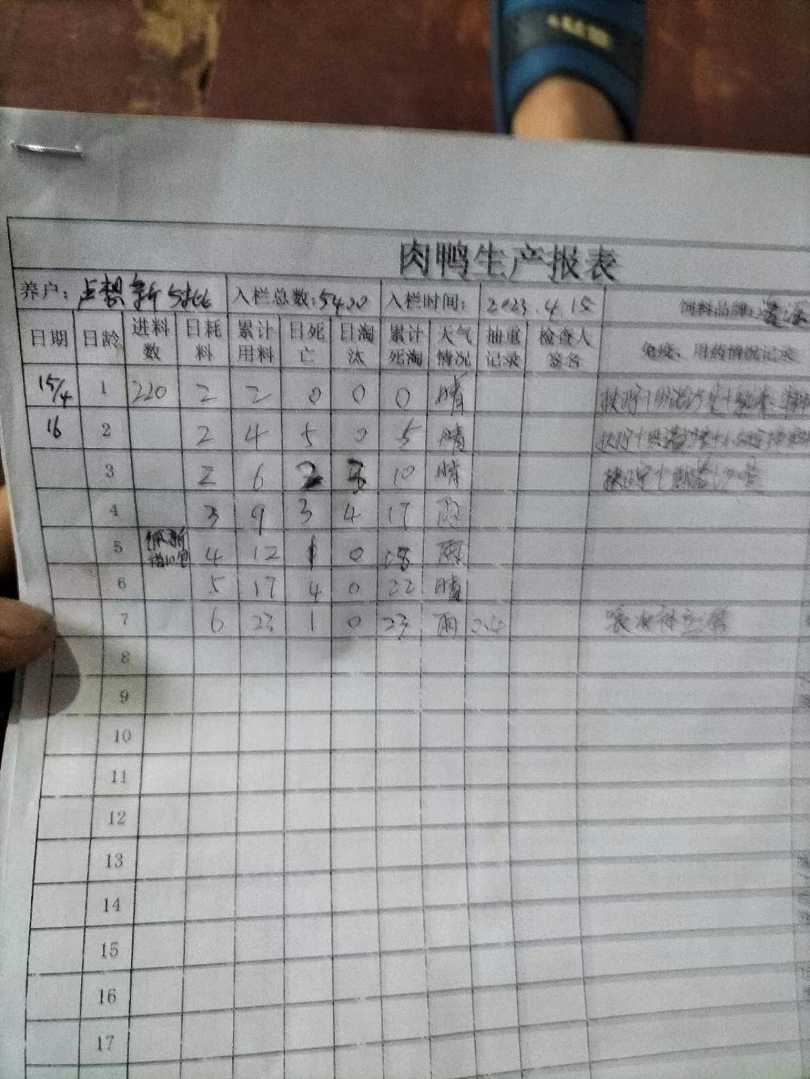 肉鸭生产报表
养户： 入栏总数：5400 入栏时间： 2023.4.15 饲料品牌：
日期 日龄 进料数 日耗料 累计用料 日死亡 日淘汰 累计死淘 天气情况 抽重记录 检查人签名 免疫、用药情况记录
15/4 1 220 2 2 0 0 0 晴
16 2 2 4 5 0 5 晴
3 2 6 2 3 10 晴
4 3 9 3 4 17 雨
5 4 12 1 0 18 雨
6 5 17 4 0 22 晴
7 6 23 1 0 23 雨
8
9
10
11
12
13
14
15
16
17